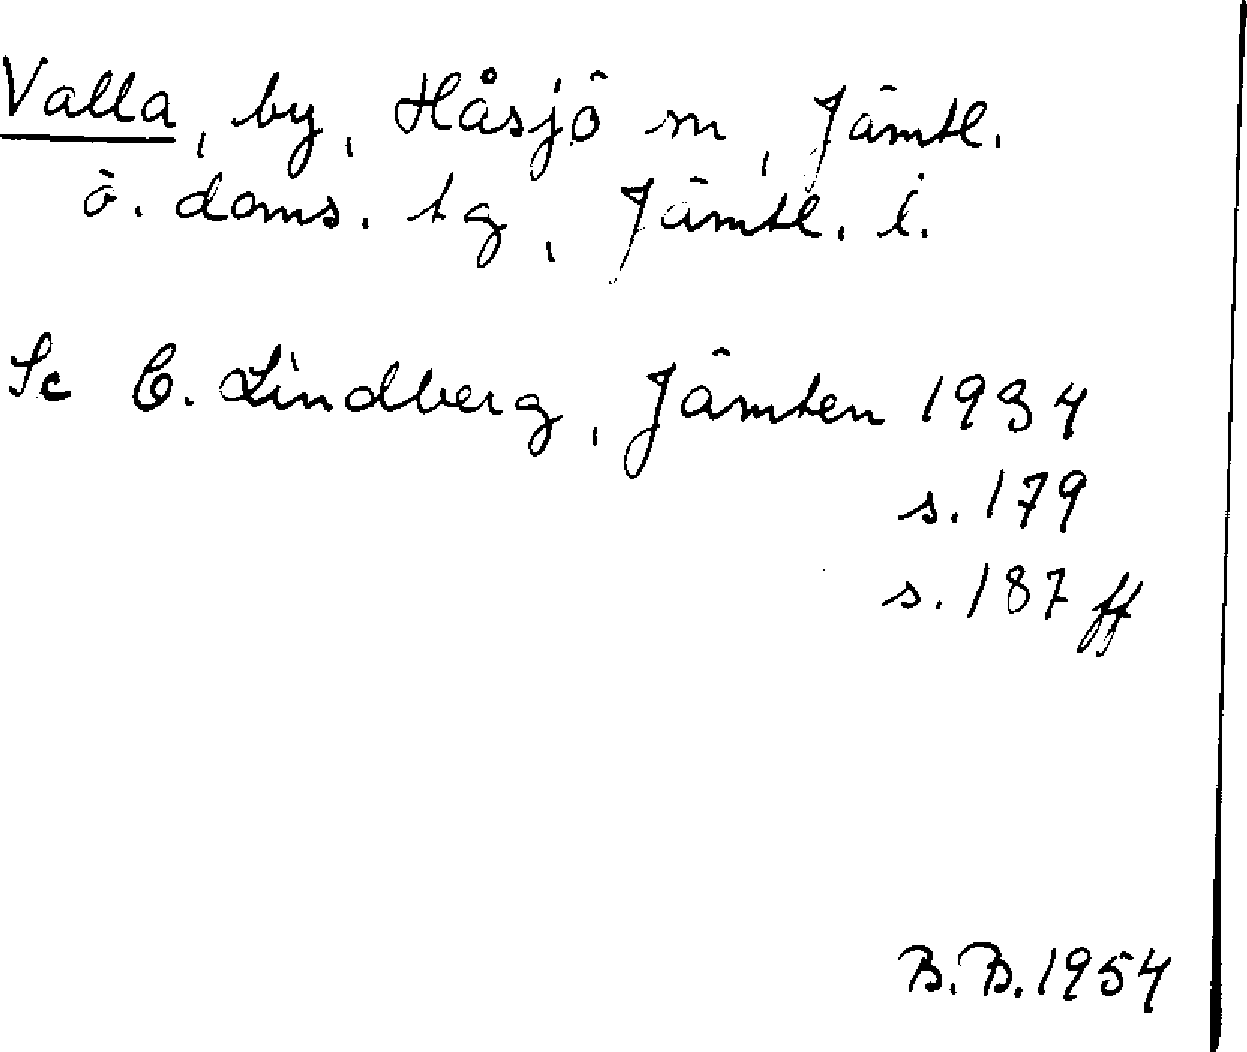 Valla, by, Håsjö sn, Jämtl.
ö. doms. tg, Jämtl. l.
Se C. Lindberg, Jämten 1934
s. 179
s. 187 ff
B.B. 1954